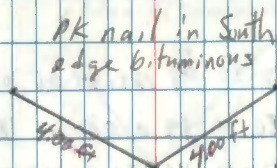 PK nail in South
edge bituminous
4.00 ft
4.00 ft